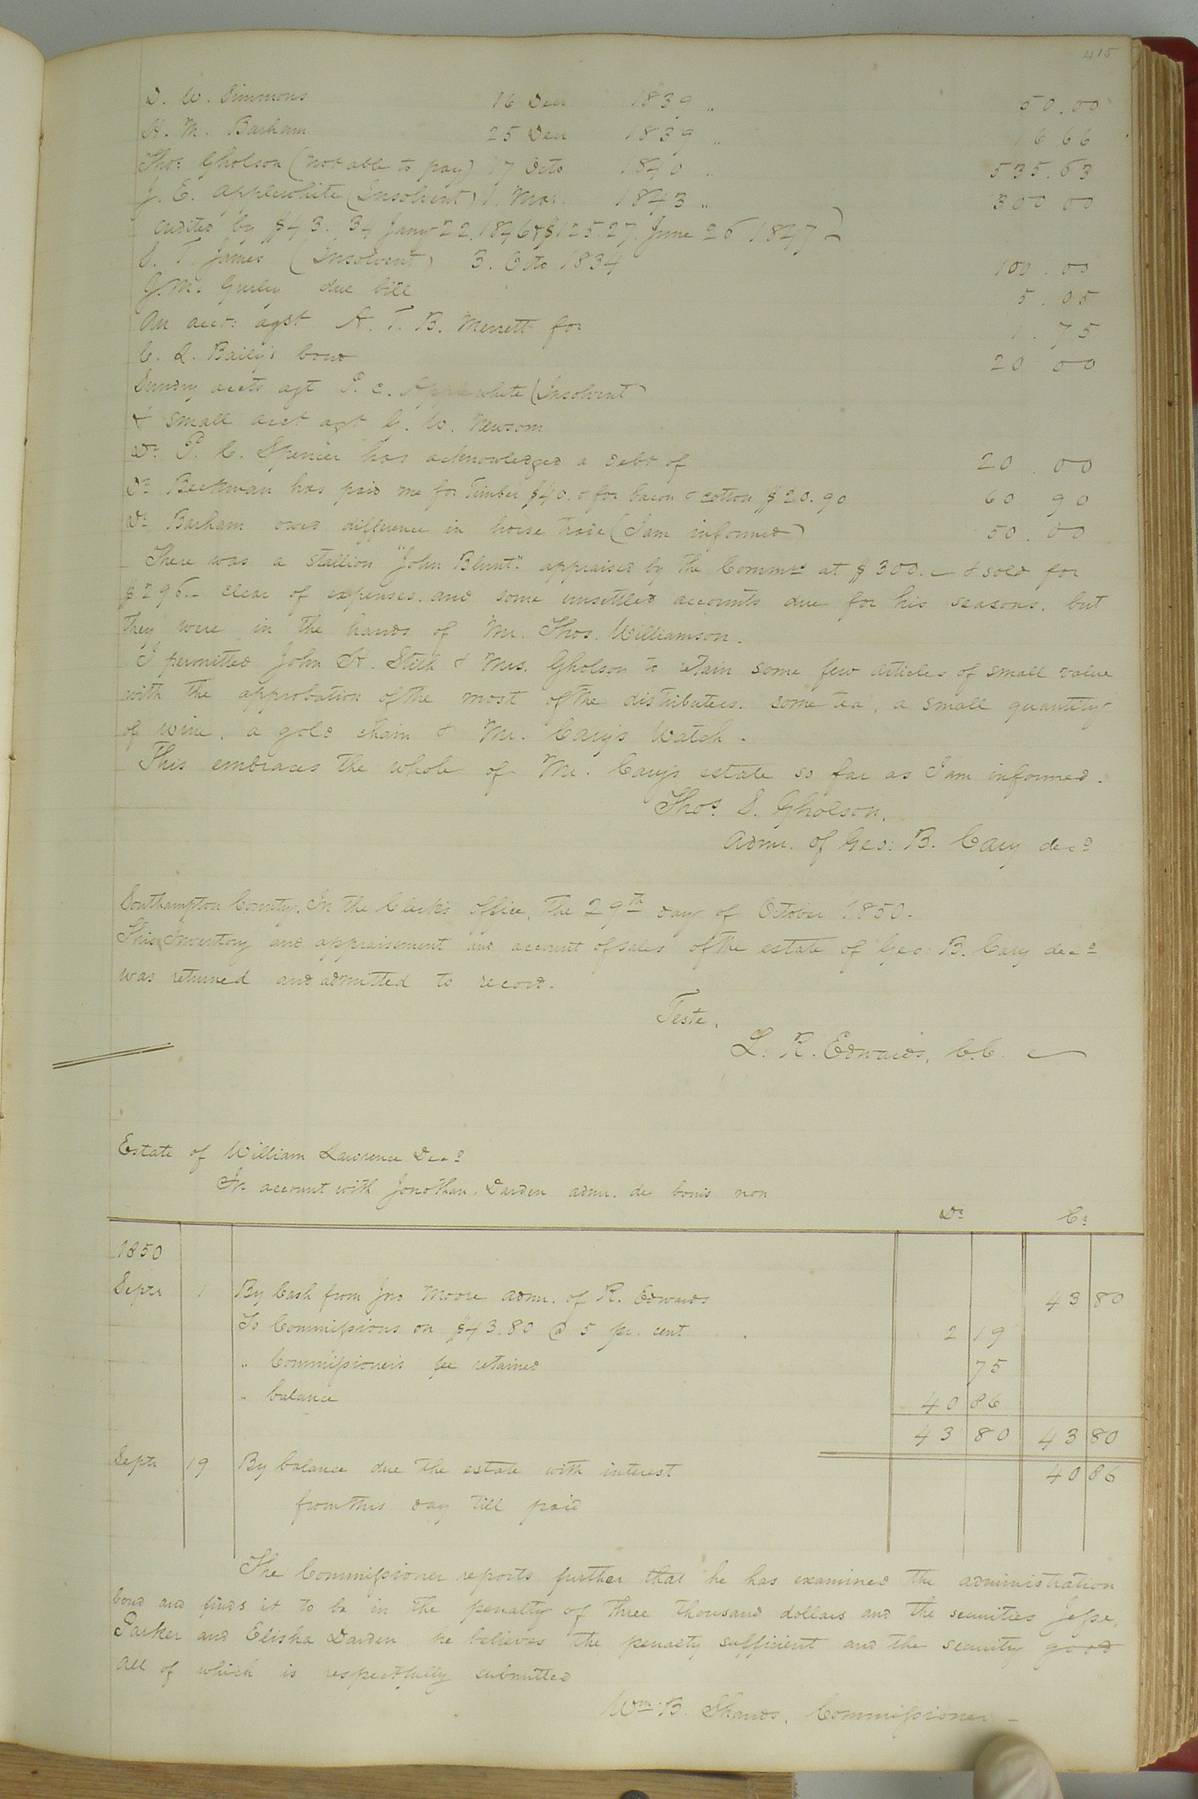 415
D. W. Simmons 16 Dec 1839 " 50.00
H. M. Barham 25 Dec 1839 " 16 66
Thos. Gholson (not able to pay) 17 Octo 1840 " 535.63
J. E. Applewhite (Insolvent) 1. Mar. 1843 " 300 00
credited by $43.34 Jany 22. 1846 & $125.27. June 26 1847)
E. T. James (Insolvent) 3. Octo 1834 100.00
J. M. Gurley due bill 5.05
An acct: agst A. T. B. Merrett for 1.75
C. L. Baily's bond 20 00
Sundry accts agt P. C. Applewhite (Insolvent)
& small acct agt G. W. Newsom
Dr. P. C. Spencer has acknowledged a debt of 20.00
Dr. Beckwan has paid me for timber $40. & for bacon & cotton $20.90 60 90
Dr. Barham owes difference in horse trade (I am informed) 50.00
There was a stallion "John Blunt" appraised by the Commrs at $300.— & sold for
$296.— clear of expenses. and some unsettled accounts due for his seasons. but
they were in the hands of Mr. Thos. Williamson.
I permitted John H. Stith & Mrs. Gholson to retain some few articles of small value
with the approbation of the most of the distributees. some tea, a small quantity
of wine, a gold chain & Mr. Cary's Watch.
This embraces the whole of Mr. Cary's estate so far as I am informed.
Thos. S. Gholson,
Admr. of Geo: B. Cary decd
Southampton County. In the Clerk's office, the 29th day of October 1850.
This Inventory and appraisement and account of sales of the estate of Geo: B. Cary decd
was returned and admitted to record.
Teste,
L. R. Edwards, C.C.
Estate of William Lawrence Decd
In account with Jonathan Darden admr. de bonis non
Dr Cr
1850
Septr 1 By Cash from Jno Moore admr. of R. Edwards 43 80
To Commissions on $43.80 @ 5 pr. cent 2 19
" Commissioner's fee retained 75
" balance 40 86
43 80 43 80
Septr 19 By balance due the estate with interest 40 86
from this day till paid
The Commissioner reports further that he has examined the administration
bond and finds it to be in the penalty of three thousand dollars and the securities Jesse
Parker and Elisha Darden he believes the penalty sufficient and the security good
All of which is respectfully submitted
Wm. B. Shands, Commissioner —